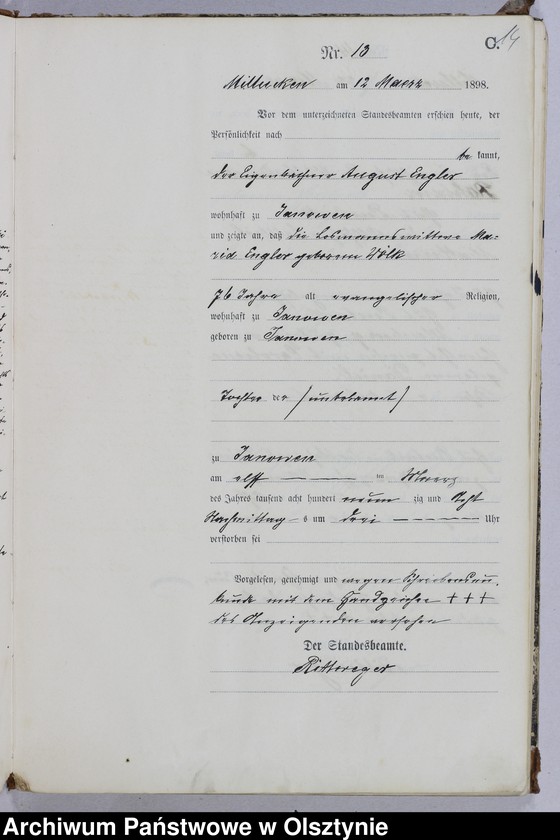 C. 14
Nr. 13
Miltucken am 12 Maerz 1898.
Vor dem unterzeichneten Standesbeamten erschien heute, der
Persönlichkeit nach
be kannt,
der Eigenkäthner August Engler
wohnhaft zu Janowen
und zeigte an, daß die Losmannswittwe Ma-
rie Engler geborene Wölk
76 Jahre alt evangelischer Religion,
wohnhaft zu Janowen
geboren zu Janowen
Tochter der (unbekannt)
zu Janowen
am elf im Maerz
des Jahres tausend acht hundert neun zig und Acht
Nachmittag s um drei Uhr
verstorben sei
Vorgelesen, genehmigt und wegen Schreibensun-
kunde mit dem Handzeichen +++
des Anzeigenden versehen
Der Standesbeamte.
Archiwum Państwowe w Olsztynie